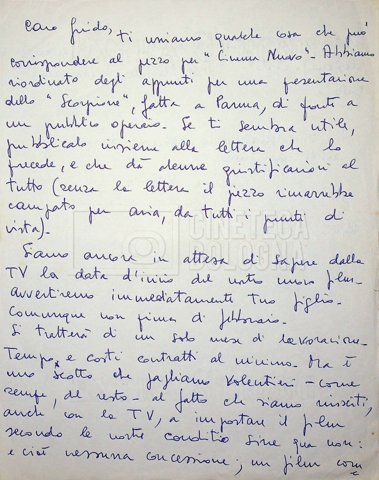 Caro Guido,
ti uniamo qualche cosa che può
corrispondere al pezzo per "Cinema Nuovo". Abbiamo
riordinato degli appunti per una presentazione
dello "Scorpione", fatta a Parma, di fronte a
un pubblico operaio. Se ti sembra utile,
pubblicalo insieme alla lettera che lo
precede, e che dà alcune giustificazioni al
tutto (senza la lettera il pezzo rimarrebbe
campato per aria, da tutti i punti di
vista).
Siamo ancora in attesa di sapere dalla
TV la data d'inizio del nostro nuovo film.
avvertiremo immediatamente tuo figlio.
comunque non prima di febbraio.
Si tratterà di un solo mese di lavorazione.
Tempo, e costi contratti al minimo. Ma è
uno scotto che paghiamo volentieri - come
sempre, del resto - al fatto che siamo riusciti,
anche con la TV, a impostare il film
secondo le nostre condizioni sine qua non:
e cioè nessuna concessione; un film come
CINETECA
BOLOGNA